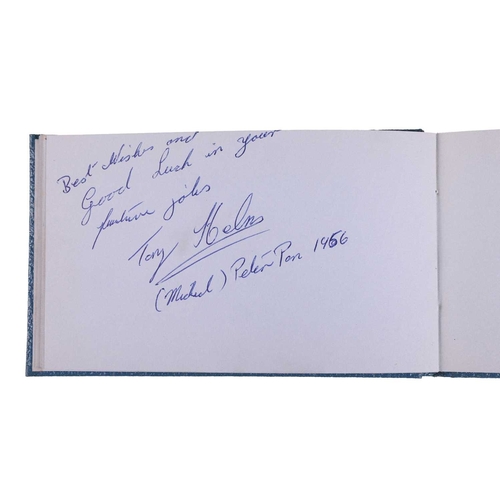 Best Wishes and
Good Luck in your
future jobs
Tony Helms
(Michael) Peter Pan 1956